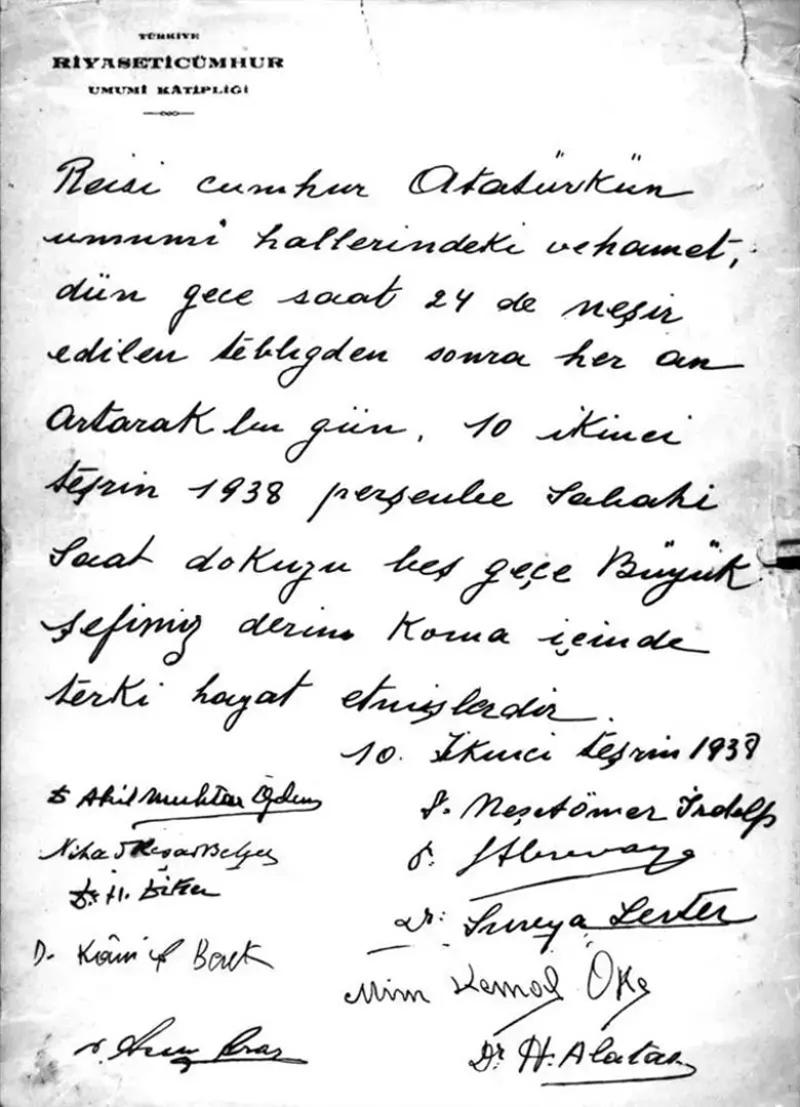 TÜRKİYE
RİYASETİCÜMHUR
UMUMÎ KÂTİPLİĞİ
Reisi cumhur Atatürkün
umumî hallerindeki vehamet,
dün gece saat 24 de neşir
edilen tebliğden sonra her an
artarak bu gün, 10 ikinci
teşrin 1938 perşenbe sabahi
saat dokuzu beş geçe Büyük
şefimiz derin koma içinde
terki hayat etmişlerdir.
10. İkinci teşrin 1938
Dr Akil Muhtar Özden
D. Neşetömer İrdelp
Nihad Reşad Belger
Dr. H. Diker
Dr: Sureya Serter
D. Kâmil Berk
Mim Kemal Öke
Dr. H. Alataş